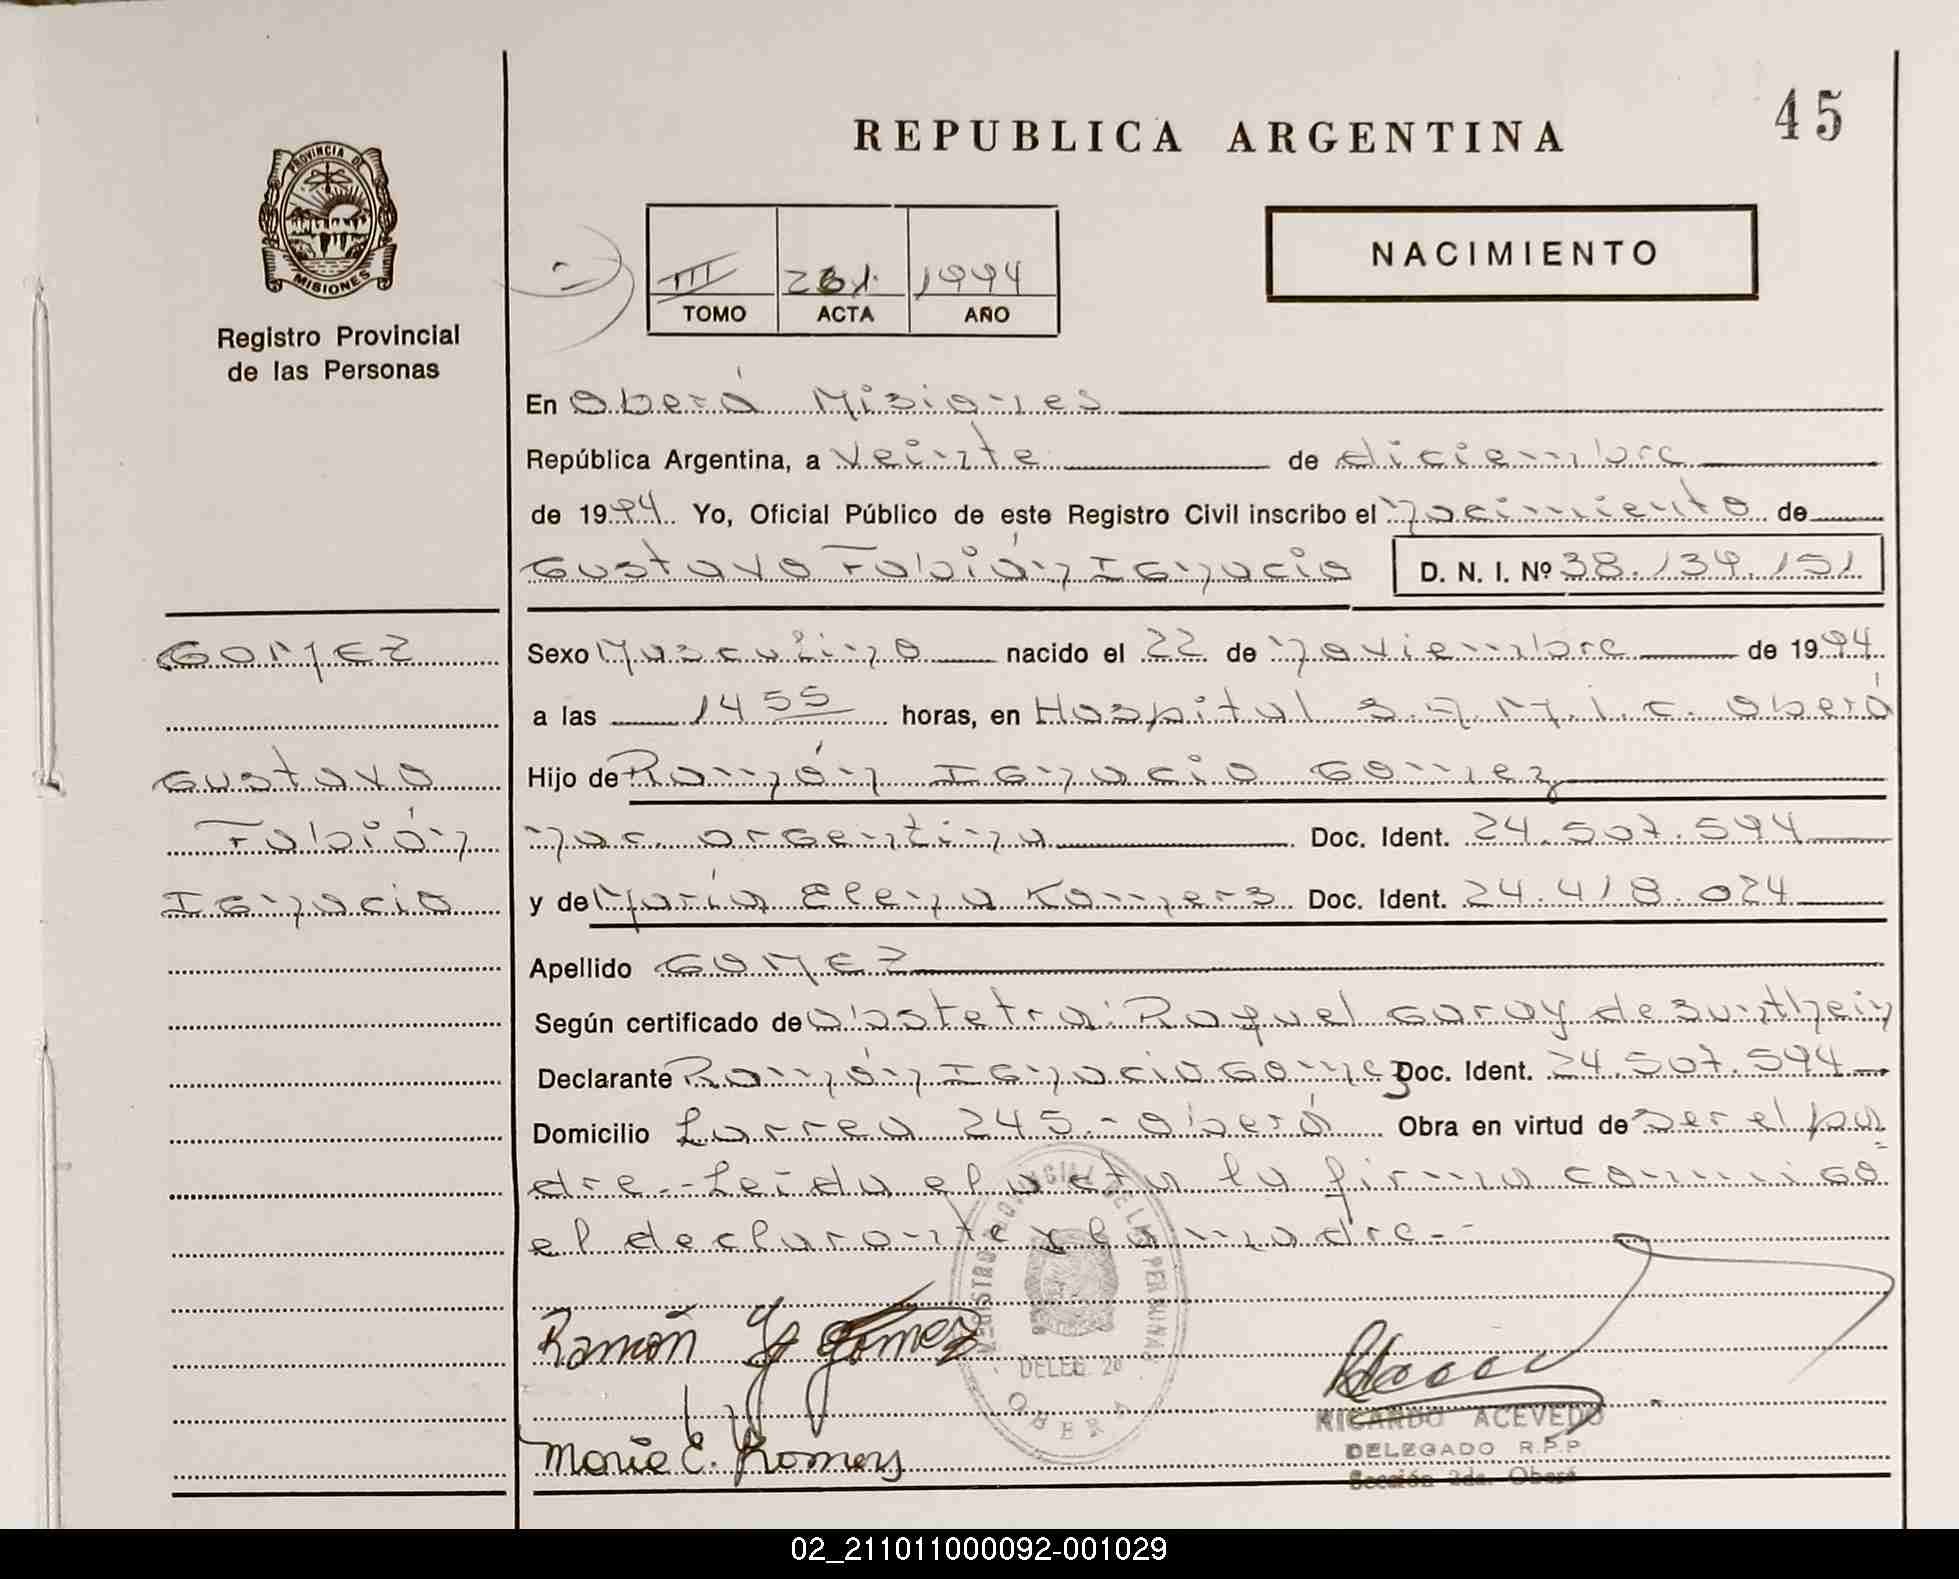 45
REPUBLICA ARGENTINA
PROVINCIA DE
MISIONES
Registro Provincial
de las Personas
NACIMIENTO
III 1994
TOMO ACTA AÑO
En Oberá Misiones
República Argentina, a veinte de diciembre
de 1994. Yo, Oficial Público de este Registro Civil inscribo el nacimiento de
Gustavo Fabián Ignacio D. N. I. Nº 38.139.151
GOMEZ
Gustavo
Fabián
Ignacio
Sexo Masculino nacido el 22 de noviembre de 1994
a las 14 55 horas, en Hospital S.A.M.I.C. Oberá
Hijo de Ramón Ignacio Gomez
nac. argentina Doc. Ident. 24.507.594
y de María Elena Kamers Doc. Ident. 24.418.024
Apellido GOMEZ
Según certificado de obstetra: Raquel Garay de
Declarante Ramón Ignacio Gomez Doc. Ident. 24.507.594
Domicilio Larrea 245 - Oberá Obra en virtud de ser el pa
dre.- Leída el acta la firma conmigo
el declarante y la madre.-
REGISTRO PROVINCIAL DE LAS PERSONAS
DELEG. 20
OBERA
Ramón Y Gomez
Maria E. Kamers
RICARDO ACEVEDO
DELEGADO R.P.P.
Sección 2da. Oberá
02_211011000092-001029